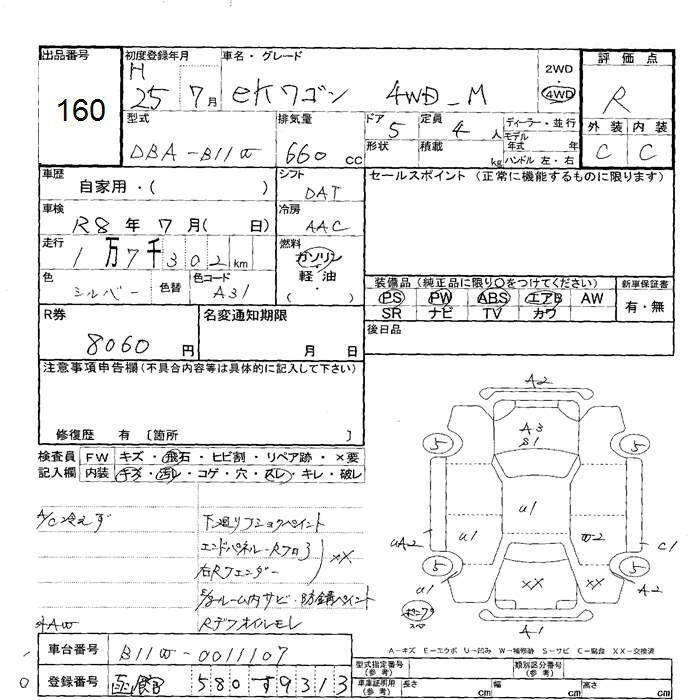 出品番号 160
初度登録年月 H 25 7月
車名・グレード eKワゴン 4WD_M
2WD 4WD
評価点 R
外装 内装
C C
型式 DBA-B11W
排気量 660 cc
ドア 5
定員 4人
ディーラー・並行
モデル年式 年
形状
積載 kg
ハンドル 左・右
車歴 自家用・( )
シフト DAT
セールスポイント (正常に機能するものに限ります)
車検 R8年 7月( 日)
冷房 AAC
走行 1万7千302km
燃料 ガソリン 軽油 ( )
色 シルバー 色替
色コード A31
装備品 (純正品に限り○をつけてください)
PS PW ABS エアB AW
SR ナビ TV カワ
新車保証書 有・無
R券 8060円
名変通知期限 月 日
後日品
注意事項申告欄 (不具合内容等は具体的に記入して下さい)
修復歴 有 〔箇所 〕
検査員 記入欄
FW キズ・飛石・ヒビ割・リペア跡・×要
内装 キズ・汚レ・コゲ・穴・スレ・キレ・破レ
A/C冷えず
下廻リフショクペイント
エンドパネル・Rフロア
右Rフェンダー
XX
ルーム内サビ・防錆ペイント
RデフオイルモレA2
A3
S1
5
5
U1
UA2
U1
W2
C1
5
5
U1
XX
XX
A2
A1
A…キズ E…エクボ U…凹み W…補修跡 S…サビ C…腐食 XX…交換済
車台番号 B11W-0011107
登録番号 580 す9313
型式指定番号 (参考)
類別区分番号 (参考)
車庫証明用 (参考) 長さ cm 幅 cm 高さ cm